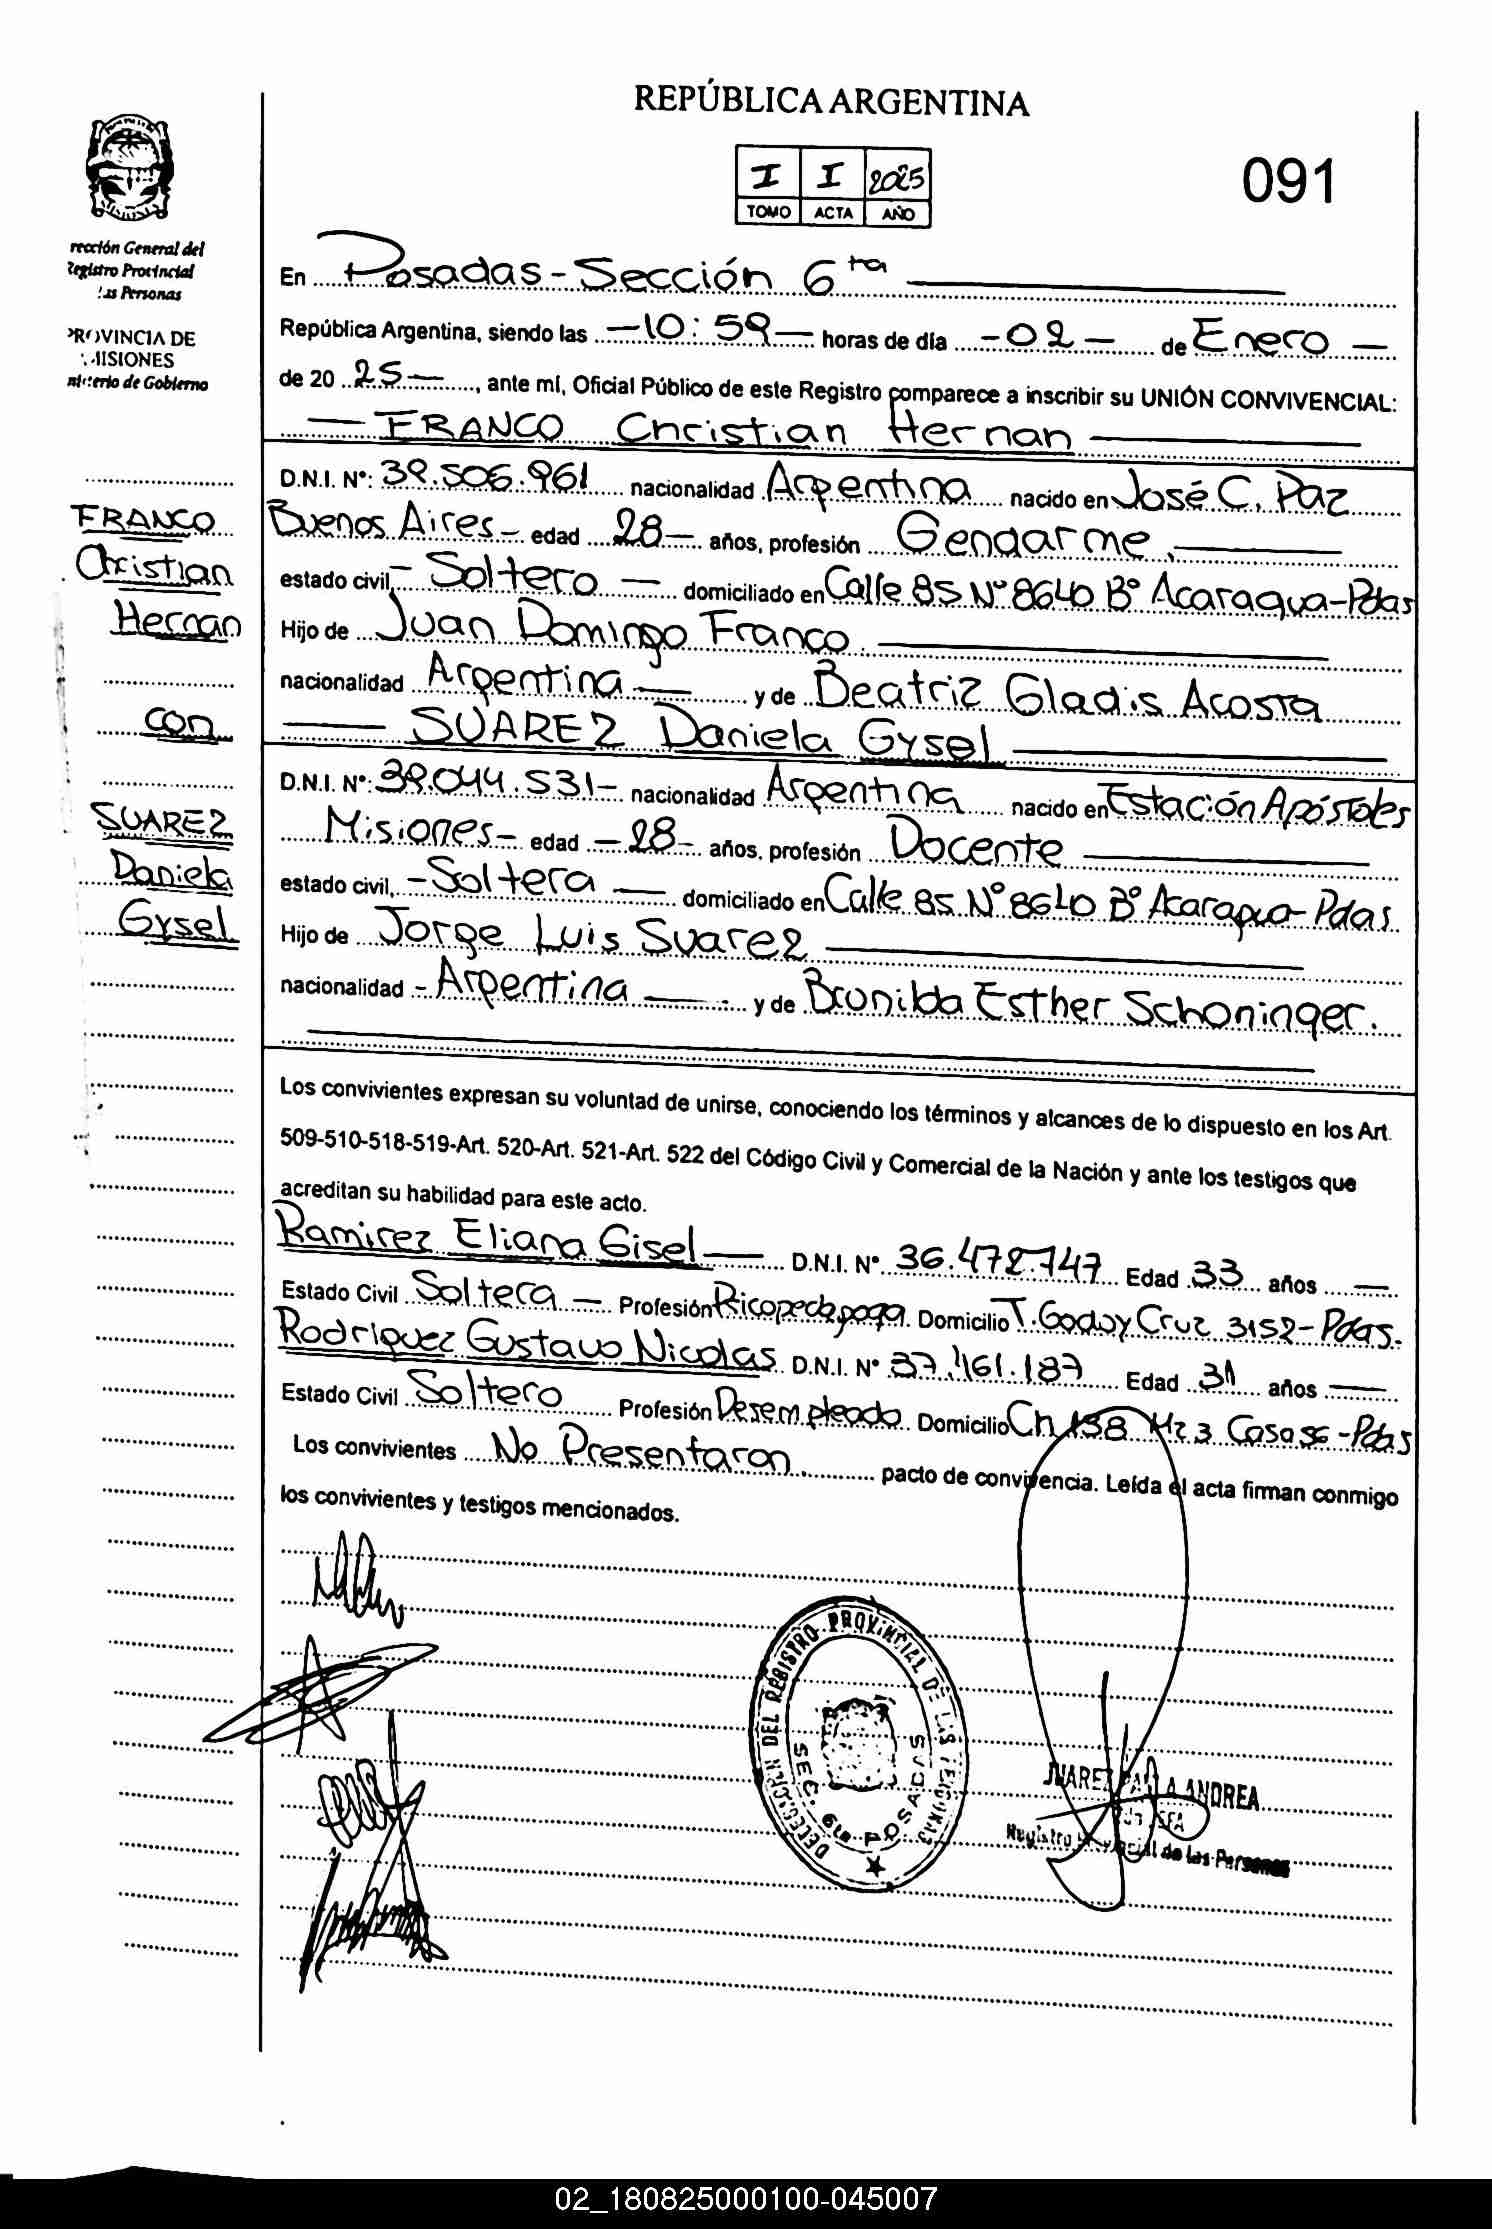 REPÚBLICA ARGENTINA
I I 2025
TOMO ACTA AÑO
091
rección General del
Registro Provincial
las Personas
PROVINCIA DE
MISIONES
nisterio de Gobierno
En Posadas - Sección 6ta
República Argentina, siendo las - 10:59 - horas de día - 02 - de Enero -
de 20 25 - , ante mí, Oficial Público de este Registro comparece a inscribir su UNIÓN CONVIVENCIAL:
- FRANCO Christian Hernan
D.N.I. Nº: 39.506.961 nacionalidad Argentina nacido en José C. Paz
Buenos Aires - edad 28 - años, profesión Gendarme.
estado civil, - Soltero - domiciliado en Calle 85 Nº 8640 Bº Acaragua - Pdas
Hijo de Juan Domingo Franco.
nacionalidad Argentina - y de Beatriz Gladis Acosta
SUAREZ Daniela Gysel
D.N.I. Nº: 39.044.531 - nacionalidad Argentina nacido en Estación Apóstoles
Misiones - edad - 28 - años, profesión Docente
estado civil, - Soltera - domiciliado en Calle 85 Nº 8640 Bº Acaragua - Pdas.
Hijo de Jorge Luis Suarez
nacionalidad - Argentina - y de Brunilda Esther Schoninger.
FRANCO
Christian
Hernan
con
SUAREZ
Daniela
Gysel
Los convivientes expresan su voluntad de unirse, conociendo los términos y alcances de lo dispuesto en los Art.
509-510-518-519-Art. 520-Art. 521-Art. 522 del Código Civil y Comercial de la Nación y ante los testigos que
acreditan su habilidad para este acto.
Ramirez Eliana Gisel - D.N.I. Nº 36.472.747 Edad 33 años -
Estado Civil Soltera - Profesión Psicopedagoga Domicilio T. Godoy Cruz 3152 - Pdas.
Rodriguez Gustavo Nicolas D.N.I. Nº 37.461.187 Edad 31 años -
Estado Civil Soltero Profesión Desempleado Domicilio Ch 138 Mz 3 Casa 56 - Pdas
Los convivientes No Presentaron. pacto de convivencia. Leída el acta firman conmigo
los convivientes y testigos mencionados.
DELEGACION DEL REGISTRO PROVINCIAL DE LAS PERSONAS
SEC. 6ta POSADAS
JUAREZ ANDREA
Registro Provincial de las Personas
02_180825000100-045007